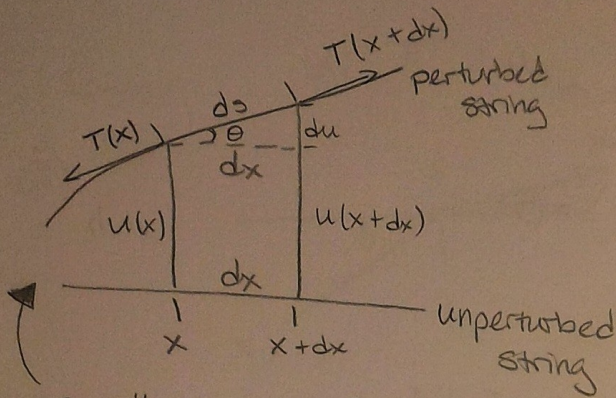 T(x+dx)
perturbed
string
ds
T(x)
θ
du
dx
u(x)
u(x+dx)
dx
unperturbed
string
x
x+dx